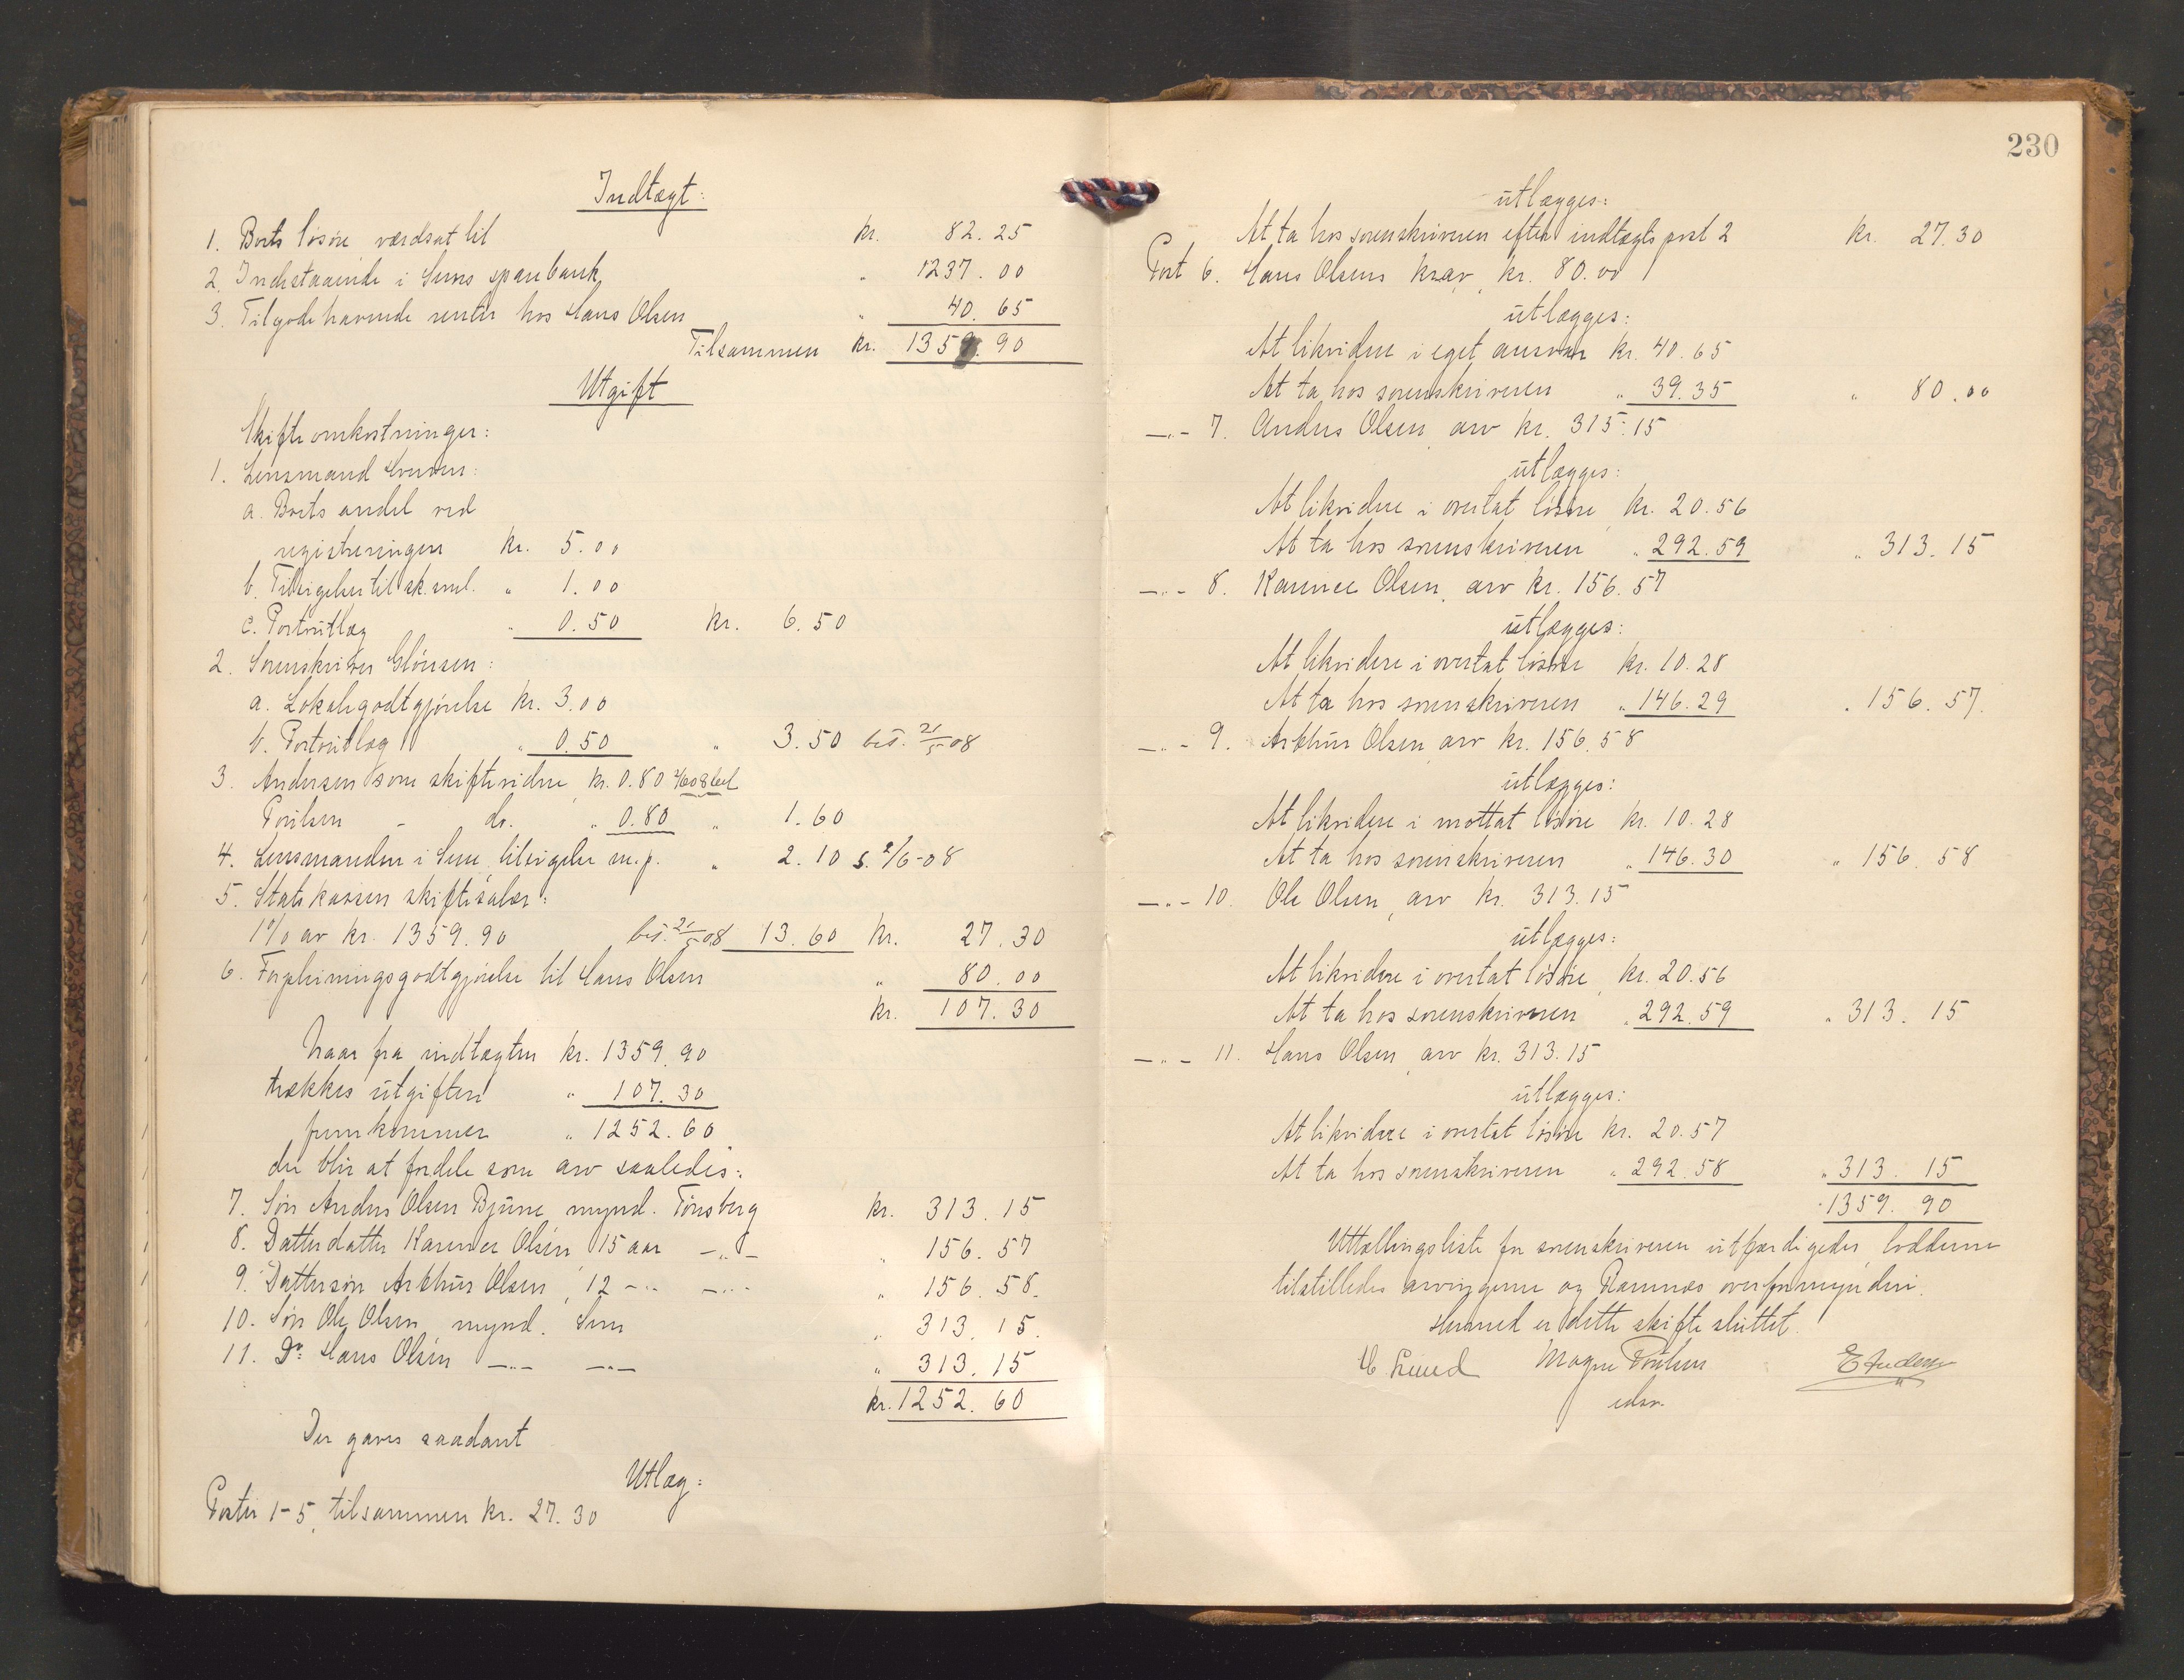 Indtægt:
1. Boets løsøre værdsat til kr. 82.25
2. Indestaaende i Sems sparebank " 1237.00
3. Tilgodehavende renter hos Hans Olsen " 40.65
Tilsammen kr. 1359.90
Utgift
Skifteomkostninger:
1. Lensmand
a. Boets andel ved
registreringen kr. 5.00
b. Tilsigelser til sk.saml. " 1.00
c. Portoutlæg " 0.50 kr. 6.50
2. Sorenskriver
a. Lokalegodtgjørelse kr. 3.00
b. Portoutlæg " 0.50 " 3.50 bet. 21/5-08
3. Andersen som skiftevidne, kr. 0.80
Poulsen - do. " 0.80 " 1.60
4. Lensmanden i Sem, tilsigelse m.p. " 2.10 s. 2/6-08
5. Statskassen skiftesalær:
1% av kr. 1359.90 bet. 21/5-08 13.60 kr. 27.30
6. Forpleiningsgodtgjørelse til Hans Olsen " 80.00
kr. 107.30
Naar fra indtægten kr. 1359.90
trækkes utgiften " 107.30
fremkommer " 1252.60
der blir at fordele som arv saaledes:
7. Søn Anders Olsen Bjune, mynd. Tønsberg kr. 313.15
8. Datterdatter Karinee Olsen, 15 aar -"- " 156.57
9. Dattersøn Arthur Olsen, 12 -"- -"- " 156.58.
10. Søn Ole Olsen, mynd. Sem " 313.15.
11. Do: Hans Olsen -"- -"- " 313.15
kr. 1252.60
Der gaves saadant
Utlæg:
Poster 1-5, tilsammen kr. 27.30
230
utlægges:
At ta hos sorenskriveren efter indtægts post 2 kr. 27.30
Post 6. Hans Olsens krav, kr. 80.00
utlægges:
At likvidere i eget ansvar kr. 40.65
At ta hos sorenskriveren " 39.35 " 80.00
-"- 7. Anders Olsen, arv kr. 315.15
utlægges:
At likvidere i overtat løsøre, kr. 20.56
At ta hos sorenskriveren " 292.59 " 313.15
-"- 8. Karinee Olsen, arv kr. 156.57
utlægges:
At likvidere i overtat løsøre kr. 10.28
At ta hos sorenskriveren " 146.29 " 156.57.
-"- 9. Arthur Olsen, arv kr. 156.58
utlægges:
At likvidere i mottat løsøre kr. 10.28
At ta hos sorenskriveren " 146.30 " 156.58
-"- 10. Ole Olsen, arv kr. 313.15
utlægges:
At likvidere i overtat løsøre, kr. 20.56
At ta hos sorenskriveren " 292.59 " 313.15
-"- 11. Hans Olsen, arv kr. 313.15
utlægges:
At likvidere i overtat løsøre kr. 20.57
At ta hos sorenskriveren " 292.58 " 313.15
" 1359.90
Uttællingsliste for sorenskriveren utfærdigedes, lodderne
tilstilledes arvingerne og Ramnæs overformynderi.
Hermed er dette skifte sluttet.
Lund Magnus Poulsen E Andersen
edsv.